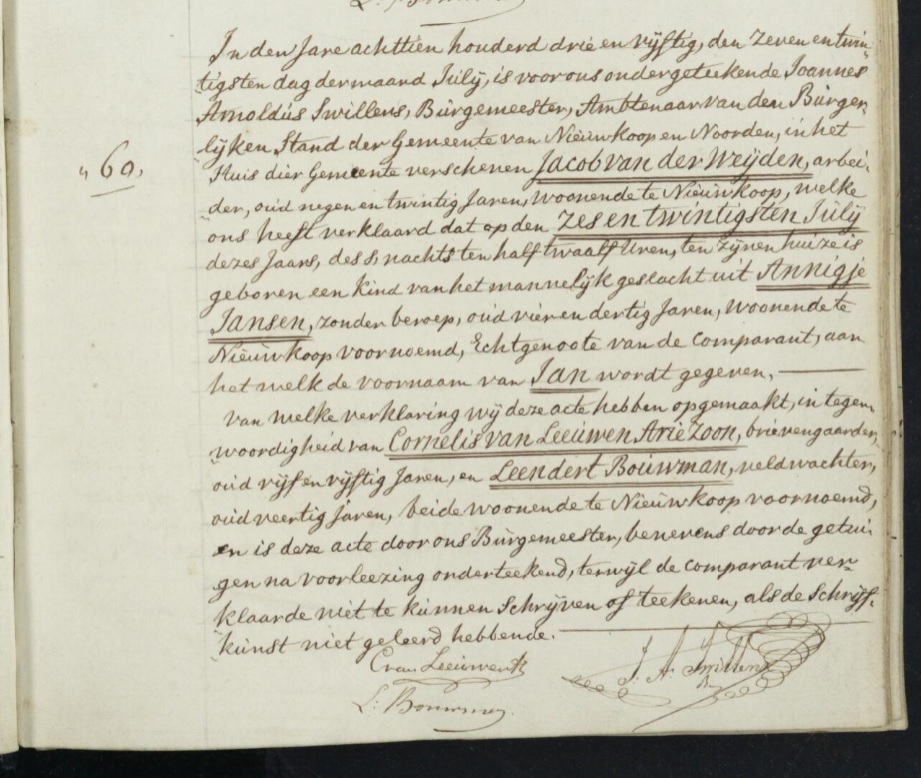 In den Jare achttien honderd drie en vijftig, den Zeven en twin-
tigsten dag der maand Julij, is voor ons ondergeteekende Joannes
Arnoldus Swillens, Burgemeester, Ambtenaar van den Burger-
lijken Stand der Gemeente van Nieuwkoop en Noorden, in het
„ 60. Huis dier Gemeente verschenen Jacob van der Weijden, arbei-
der, oud negen en twintig Jaren, woonende te Nieuwkoop, welke
ons heeft verklaard dat op den zes en twintigsten Julij
dezes Jaars, des nachts ten half twaalf Uren, ten zijnen huize is
geboren een Kind van het mannelijk geslacht uit Annigje
Jansen, zonder beroep, oud vier en dertig Jaren, woonende te
Nieuwkoop voornoemd, Echtgenoote van de Comparant, aan
het welk de voornaam van Jan wordt gegeven.
Van welke verklaring wij deze acte hebben opgemaakt, in tegen-
woordigheid van Cornelis van Leeuwen Ariezoon, brievengaarder,
oud vijf en vijftig Jaren, en Leendert Bouwman, veldwachter,
oud veertig Jaren, beide woonende te Nieuwkoop voornoemd,
en is deze acte door ons Burgemeester, benevens door de getui-
gen na voorleezing onderteekend, terwijl de Comparant ver-
klaarde niet te kunnen Schrijven of teekenen, als de Schrijf-
kunst niet geleerd hebbende.
C van Leeuwen J. A. Swillens
L: Bouwman